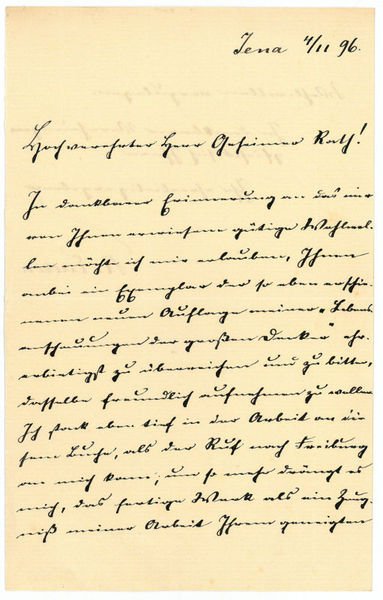 Jena 4/11 96.
Hochverehrter Herr Geheimer Rath!
In dankbarer Erinnerung an das mir
von Ihnen erwiesene gütige Wohlwol-
len möchte ich mir erlauben, Ihnen
anbei ein Exemplar der so eben erschie-
nenen neuen Auflage meiner "Lebens
anschauungen der großen Denker" ehr-
erbietigst zu überreichen und zu bitten,
dasselbe freundlich aufnehmen zu wollen.
Ich stack eben tief in der Arbeit an die
sem Buche, als der Ruf nach Freiburg
an mich kam; um so mehr drängt es
mich, das fertige Werk als ein Zeug-
niß meiner Arbeit Ihrem geneigten